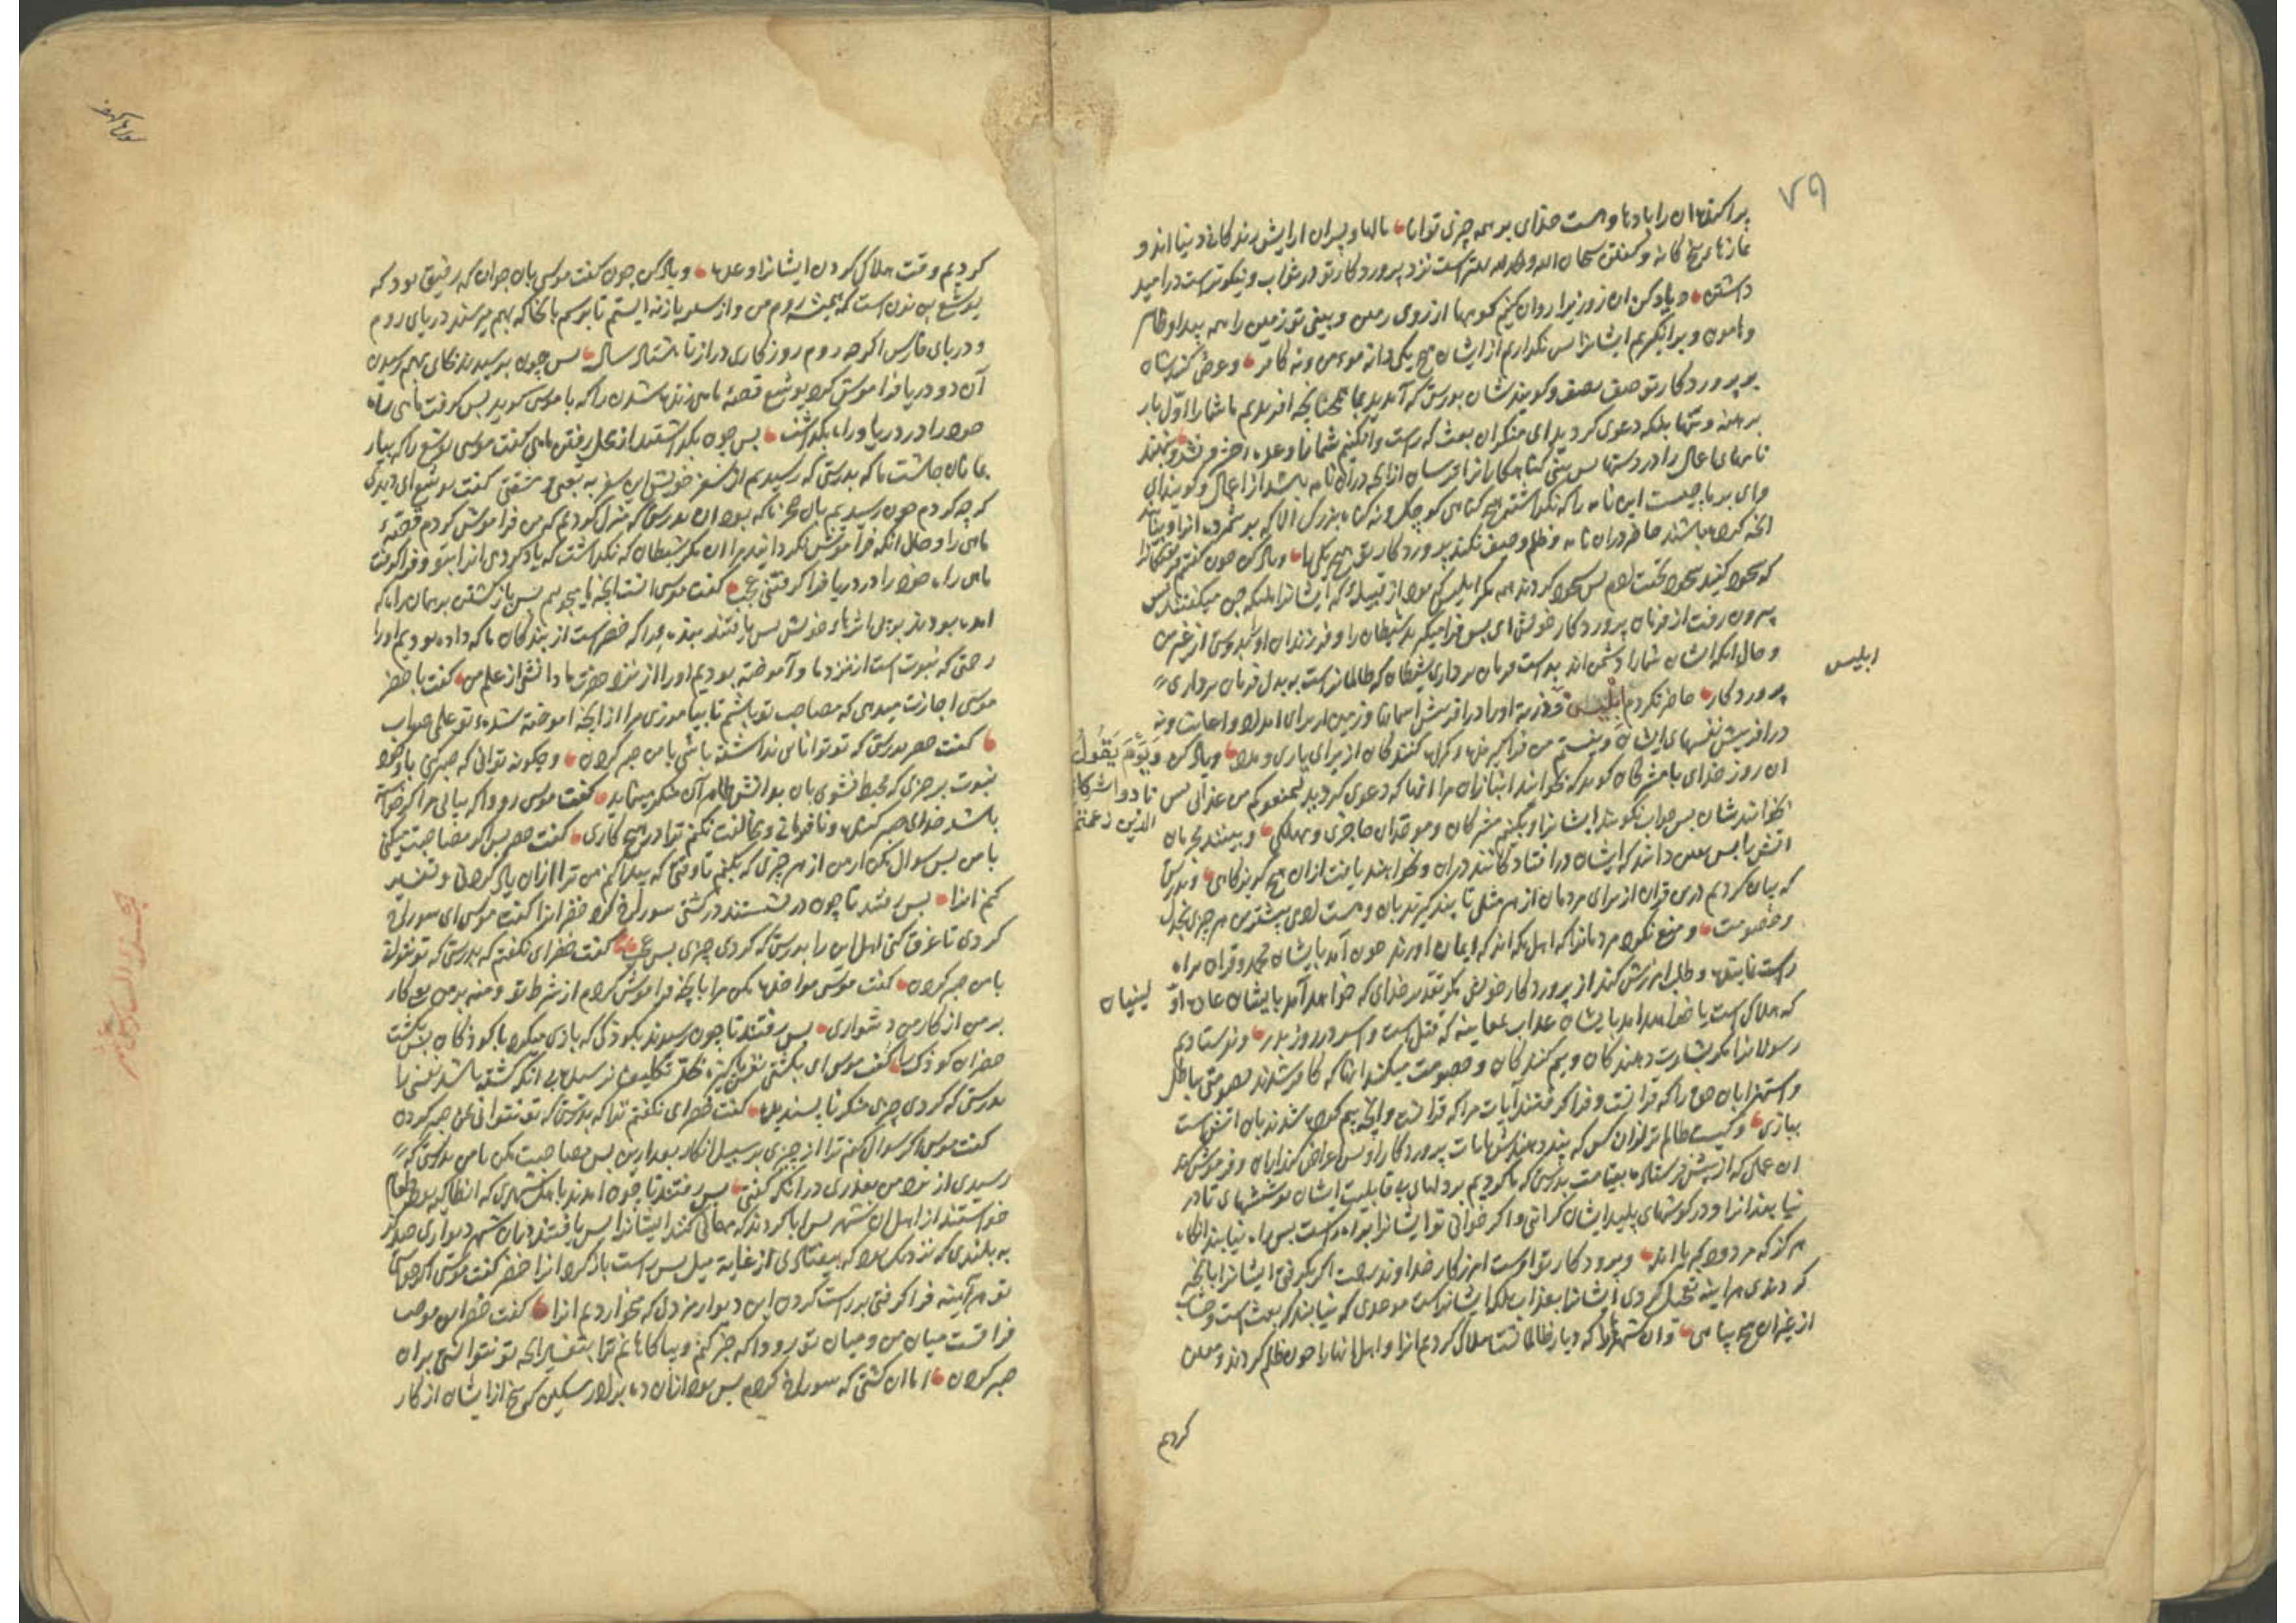 ۷۹
پراکند ان را بادها و هست خدای بر همه چیزی توانا مالها و پسران ارایش زندکانی دنیا اند و
نمازهای پنج کانه و کفتن سبحان الله والحمد لله بهترست نزد پروردکار تو در ثواب و نیکوترست در امید
داشتن و یاد کن ان روز را روان کنیم کوهها از روی زمین و بینی تو زمین را همه بیدا و ظاهر
و هامون و برانکیزیم ایشانرا پس نکذاریم از ایشان هیچ یکی را نه مومن و نه کافر و عرض کنند ایشان
بر پروردکار تو صف بصف و کویند شان بدرستی که آمدید بما همچنانچه افریدیم ما شما را اول بار
برهنه و تنها بلکه دعوی کردید ای منکران بعث که
نامهای اعمال را در دستها پس بینی کناهکارانرا ترسان از انچه در آن نامه باشد از اعمال و کویند ای
وای بر ما چیست این نامه را که نکذاشته هیچ کناهی کوچک و نه کناه بزرک الا که بر شمرده انرا و بیابند
انچه کرده باشند حاضر در ان نامه و ظلم و حیف نکند پروردکار تو هیچ یکی را و یاد کن چون کفتیم فرشتکانرا
که سجود کنید سجود تحیت ادم پس سجود کردند همه مکر ابلیس که بود از قبیله که ایشانرا ملئکه جن میکفتند پس
بیرون رفت از فرمان پروردکار خویش ای پس فرا میکیرید شیطان را و فرزندان او بدوستی از غیر من
و حال انکه ایشان شما را دشمن اند بد است فرمان برداری شیطان که ظالمانراست به بدل فرمان برداری
ابلیس
پروردکار حاضر نکردم ابلیس و ذریه او را در افرینش اسمانها و زمین از برای امداد و اعانت و نه
در افرینش نفسهای ایشان و نیستم من فرا کیرنده کمراه کنندکان از برای یاری و مدد و یاد کن وَیَوْمَ یَقُولُ
ان روز خدای با مشرکان کوید که بخوانید انبازان مرا انها که دعوی کردید لیمنعوکم من عذابی پس نادوا شرکائی
بخوانند شان پس جواب نکویند ایشانرا و بکنیم مشرکان و موحدان حاجزی و مهلکی و ببینند مجرمان الذین زعمتم
اتش را پس یقین دانند که ایشان در افتادکانند در ان و نخواهند یافت از ان هیچ کریزکاهی و بدرستی
که بیان کردیم درین قران از برای مردمان از هر مثلی تا پند کیرند بان و هست ادمی بیشترین هر چیزی بجدل
و خصومت و منع نکرد مردمانرا که اهل مکه اند که ایمان اورند چون آمد بایشان محمد و قران براه
راست نماینده و طلب امرزش کنند از پروردکار خویش مکر تقدیر خدای که خواهد آمد بایشان عادت او لپنیان
که هلاکی است یا خواهد امد بایشان عذاب بمعاینه که قتل است و اسر در روز بدر و نفرستادیم
رسولانرا مکر بشارت دهندکان و بیم کنندکان و خصومت میکنند انها که کافر شدند خصومتی بباطل
و استهزا بان حق را که قرانست و فرا کرفتند آیات مرا که قران و انچه بیم کرده شدند بان اتش است
ببازی و کیست ظالم تر از ان کس که پند دهندش بایات پروردکار او پس اعراض کند از ان و فراموش کند
ان عملی که از پیش فرستاده بقیامت بدرستی که ما کردیم بر دلهای بی قابلیت ایشان پوششهای تا در
نیابند انرا و در کوشهای پلید ایشان کرانی و اکر خوانی تو ایشانرا براه راست پس راه نیابند انکاه
هرکز که مردود بکه اند و پروردکار تو اوست امرزکار خداوند رحمت اکر بکرفتی ایشانرا بانچه
کردندی هراینه تعجیل کردی ایشانرا بعذاب بلکه ایشانراست موعدی که نیابند که بعث است و حساب
از غیر ان هیچ پناهی و ان شهرها را که دیار ظالمانست هلاک کردیم انرا و اهل انها را چون ظلم کردند و معین
کردیم
کردیم وقت هلاک کردن ایشانرا وعده و یاد کن چون کفت موسی بان جوان که رفیق بود که
یوشع بن نون است که همیشه روم من و از سفر باز نه ایستم تا برسم بانجا که بهم میرسند دریای روم
و دریای فارس اکر چه روم روزکاری دراز تا هشتاد سال پس چون برسیدند بجای بهم رسیدن
آن دو دریا فراموش کرد یوشع قصهٔ ماهی زنده شدن را که با موسی کوید پس کرفت ماهی راه
خود را در دریا و راه بکذاشت پس چون بکذشتند از محل رفتن ماهی کفت موسی یوشع را که بیار
بما نان چاشت ما که بدرستی که رسیدیم از سفر خویش این سفر به تعبی و مشقتی کفت یوشع ای دیدی
که چه کردم چون رسیدیم بان سنک که بود ان بدرستی که منزل کردیم که من فراموش کردم قصهٔ
ماهی را و حال انکه فراموش نکردانید مرا ان مکر شیطان که نکذاشت که یاد کردی انرا بتو و فرا کرفت
ماهی راه خود را در دریا فرا کرفتنی عجب کفت موسی انست انچه ما میجوییم پس باز کشتند بر همان راه که
امده بودند بر پی اثرهاء خویش پس یافتند بنده را که خضرست از بندکان ما که داده بودیم او را
رحمتی که نبوت است از نزد ما و آموخته بودیم او را از نزد حضرت ما دانشی از علم من کفت با خضر
موسی اجازت میدهی که مصاحب تو باشم تا بیاموزی مرا از انچه اموخته شده تو علمی صواب
کفت خضر بدرستی که تو توانایی نداشته باشی با من صبر کردن و چکونه توانی که صبر کنی با وجود
نبوت بر چیزی که محیط نشوی بان بدانش ظاهر آن منکر مینماید کفت موسی زود که بیابی مرا اکر خواسته
باشد خدای صبر کننده و نافرمانی و مخالفت نکنم ترا در هیچ کاری کفت خضر پس اکر مصاحبت میکنی
با من پس سوال مکن از من از هر چیزی که بکنم تا وقتی که پیدا کنم من ترا از ان یاد کردن و تفسیر
کنم انرا پس رفتند تا چون در نشستند در کشتی سوراخ کرد خضر انرا کفت موسی ای سوراخ
کردی تا غرق کنی اهل این را بدرستی که کردی چیزی بس عجب کفت خضر ای نکفتم که بدرستی که تو نتوانی
با من صبر کردن کفت موسی مواخذه مکن مرا بانچه فراموش کردم از شرط تو و منه بر من بی کار
بر من از کار من دشواری پس رفتند تا چون رسیدند بکودکی که بازی میکرد با کودکان پس بکشت
خضر ان کودک را کفت موسی ای بکشتی نفسی پاکیزه بحد تکلیف نرسیده بی انکه کشته باشد نفسی را
بدرستی که کردی چیزی منکر ناپسندیده کفت خضر ای نکفتم ترا که بدرستی که تو نتوانی با من صبر کردن
کفت موسی اکر سوال کنم ترا از چیزی بر سبیل انکار بعد ازین پس مصاحبت مکن با من بدرستی که
رسیدی از نزد من بعذری در انکه کفتی پس رفتند تا چون امدند باهل شهری که انطاکیه بود طعام
خواستند از اهل ان شهر پس ابا کردند که مهمانی کنند ایشانرا پس یافتند دران شهر دیواری صد کز
به بلندی که نزدیک بود که بیفتادی از غایة میل پس راست باز کرد انرا خضر کفت موسی اکر خواستی
تو هرآینه فرا کرفتی بر راست کردن این دیوار مزدی که بخوردیم انرا کفت خضر این موجب
فراقست میان من و میان تو زود که خبر کنم و بیاکاهانم ترا بتفسیر انچه تو نتوانستی بر ان
صبر کردن اما ان کشتی که سوراخ کردم پس بود ازان ده برادر مسکین که پنج از ایشان از کار